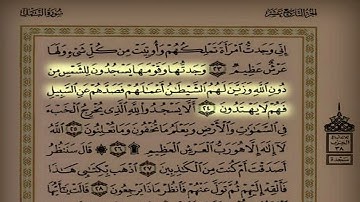 الجزء التاسع عشر
سورة النمل
إِنِّي وَجَدتُّ ٱمْرَأَةً تَمْلِكُهُمْ وَأُوتِيَتْ مِن كُلِّ شَيْءٍ وَلَهَا
عَرْشٌ عَظِيمٌ ٢٣ وَجَدتُّهَا وَقَوْمَهَا يَسْجُدُونَ لِلشَّمْسِ مِن
دُونِ ٱللَّهِ وَزَيَّنَ لَهُمُ ٱلشَّيْطَٰنُ أَعْمَٰلَهُمْ فَصَدَّهُمْ عَنِ ٱلسَّبِيلِ
فَهُمْ لَا يَهْتَدُونَ ٢٤ أَلَّا يَسْجُدُوا۟ لِلَّهِ ٱلَّذِي يُخْرِجُ ٱلْخَبْءَ
فِي ٱلسَّمَٰوَٰتِ وَٱلْأَرْضِ وَيَعْلَمُ مَا تُخْفُونَ وَمَا تُعْلِنُونَ ٢٥
ٱللَّهُ لَا إِلَٰهَ إِلَّا هُوَ رَبُّ ٱلْعَرْشِ ٱلْعَظِيمِ ٢٦ قَالَ سَنَنظُرُ
أَصَدَقْتَ أَمْ كُنتَ مِنَ ٱلْكَٰذِبِينَ ٢٧ ٱذْهَب بِّكِتَٰبِي هَٰذَا
فَأَلْقِهْ إِلَيْهِمْ ثُمَّ تَوَلَّ عَنْهُمْ فَٱنظُرْ مَاذَا يَرْجِعُونَ ٢٨ قَالَتْ يَٰٓأَيُّهَا
سجدة